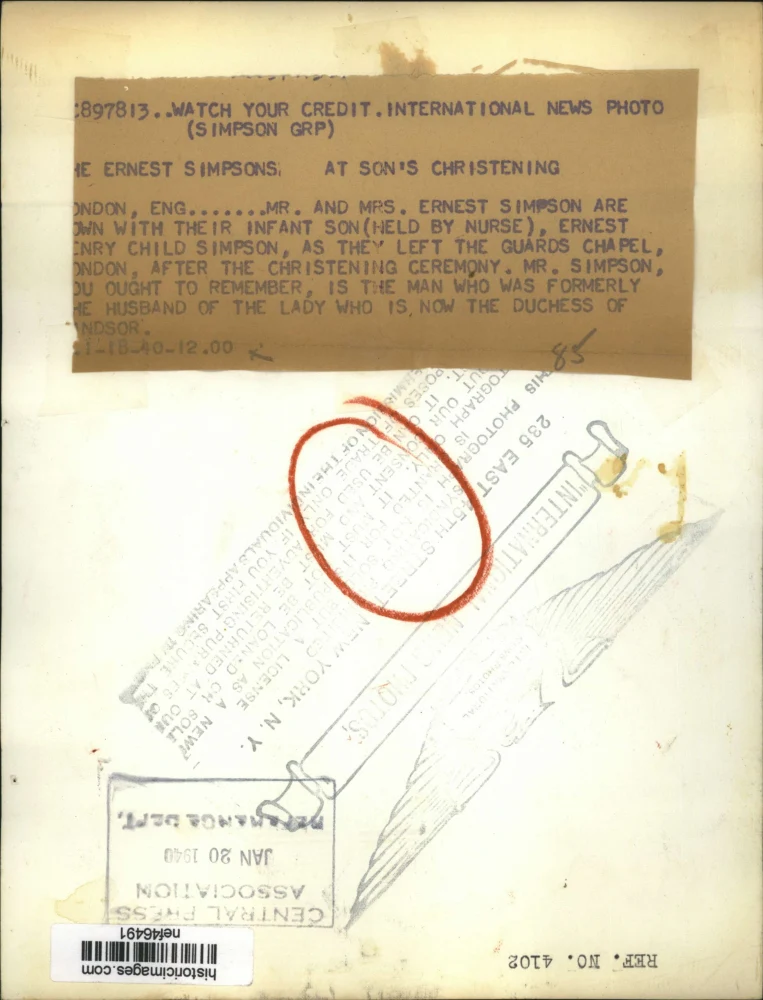 C897813..WATCH YOUR CREDIT.INTERNATIONAL NEWS PHOTO
(SIMPSON GRP)
HE ERNEST SIMPSONS, AT SON'S CHRISTENING
ONDON, ENG.......MR. AND MRS. ERNEST SIMPSON ARE
OWN WITH THEIR INFANT SON(HELD BY NURSE), ERNEST
ENRY CHILD SIMPSON, AS THEY LEFT THE GUARDS CHAPEL,
ONDON, AFTER THE CHRISTENING CEREMONY. MR. SIMPSON,
OU OUGHT TO REMEMBER, IS THE MAN WHO WAS FORMERLY
HE HUSBAND OF THE LADY WHO IS NOW THE DUCHESS OF
INDSOR.
1-18-40-12.00
85
235 EAST 45TH STREET, NEW YORK, N. Y.
"INTERNATIONAL NEWS PHOTOS,
CENTRAL PRESS
ASSOCIATION
JAN 20 1940
REFERENCE DEPT.
historicimages.com
nef46491
REF. NO. 4102